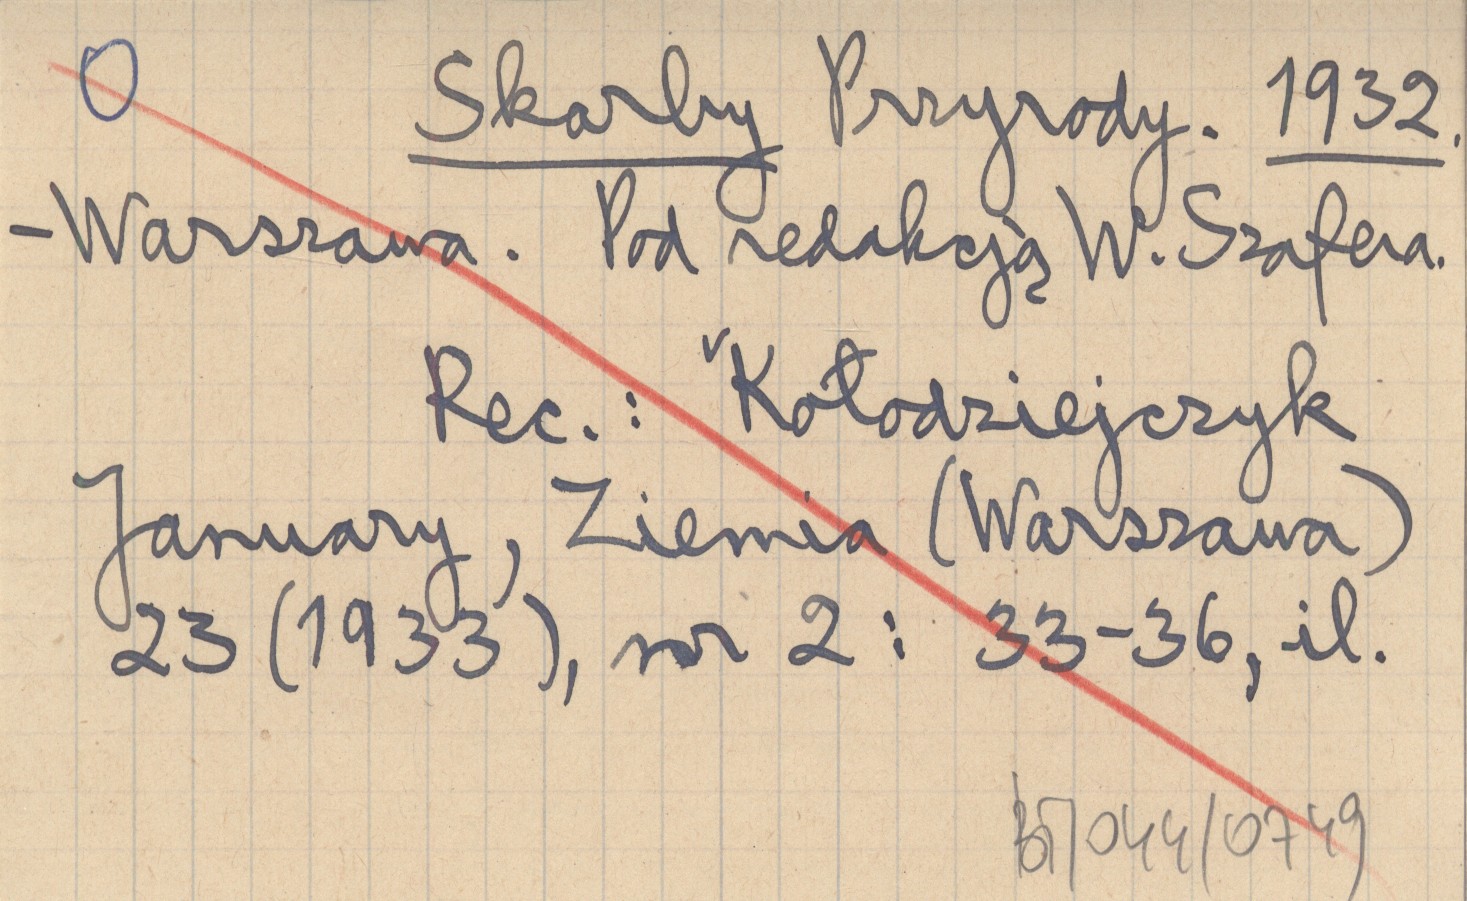 O
Skarby Przyrody. 1932.
- Warszawa. Pod redakcją W. Szafera.
Rec.: Kołodziejczyk
January, Ziemia (Warszawa)
23 (1933), nr 2: 33-36, il.
/044/0749